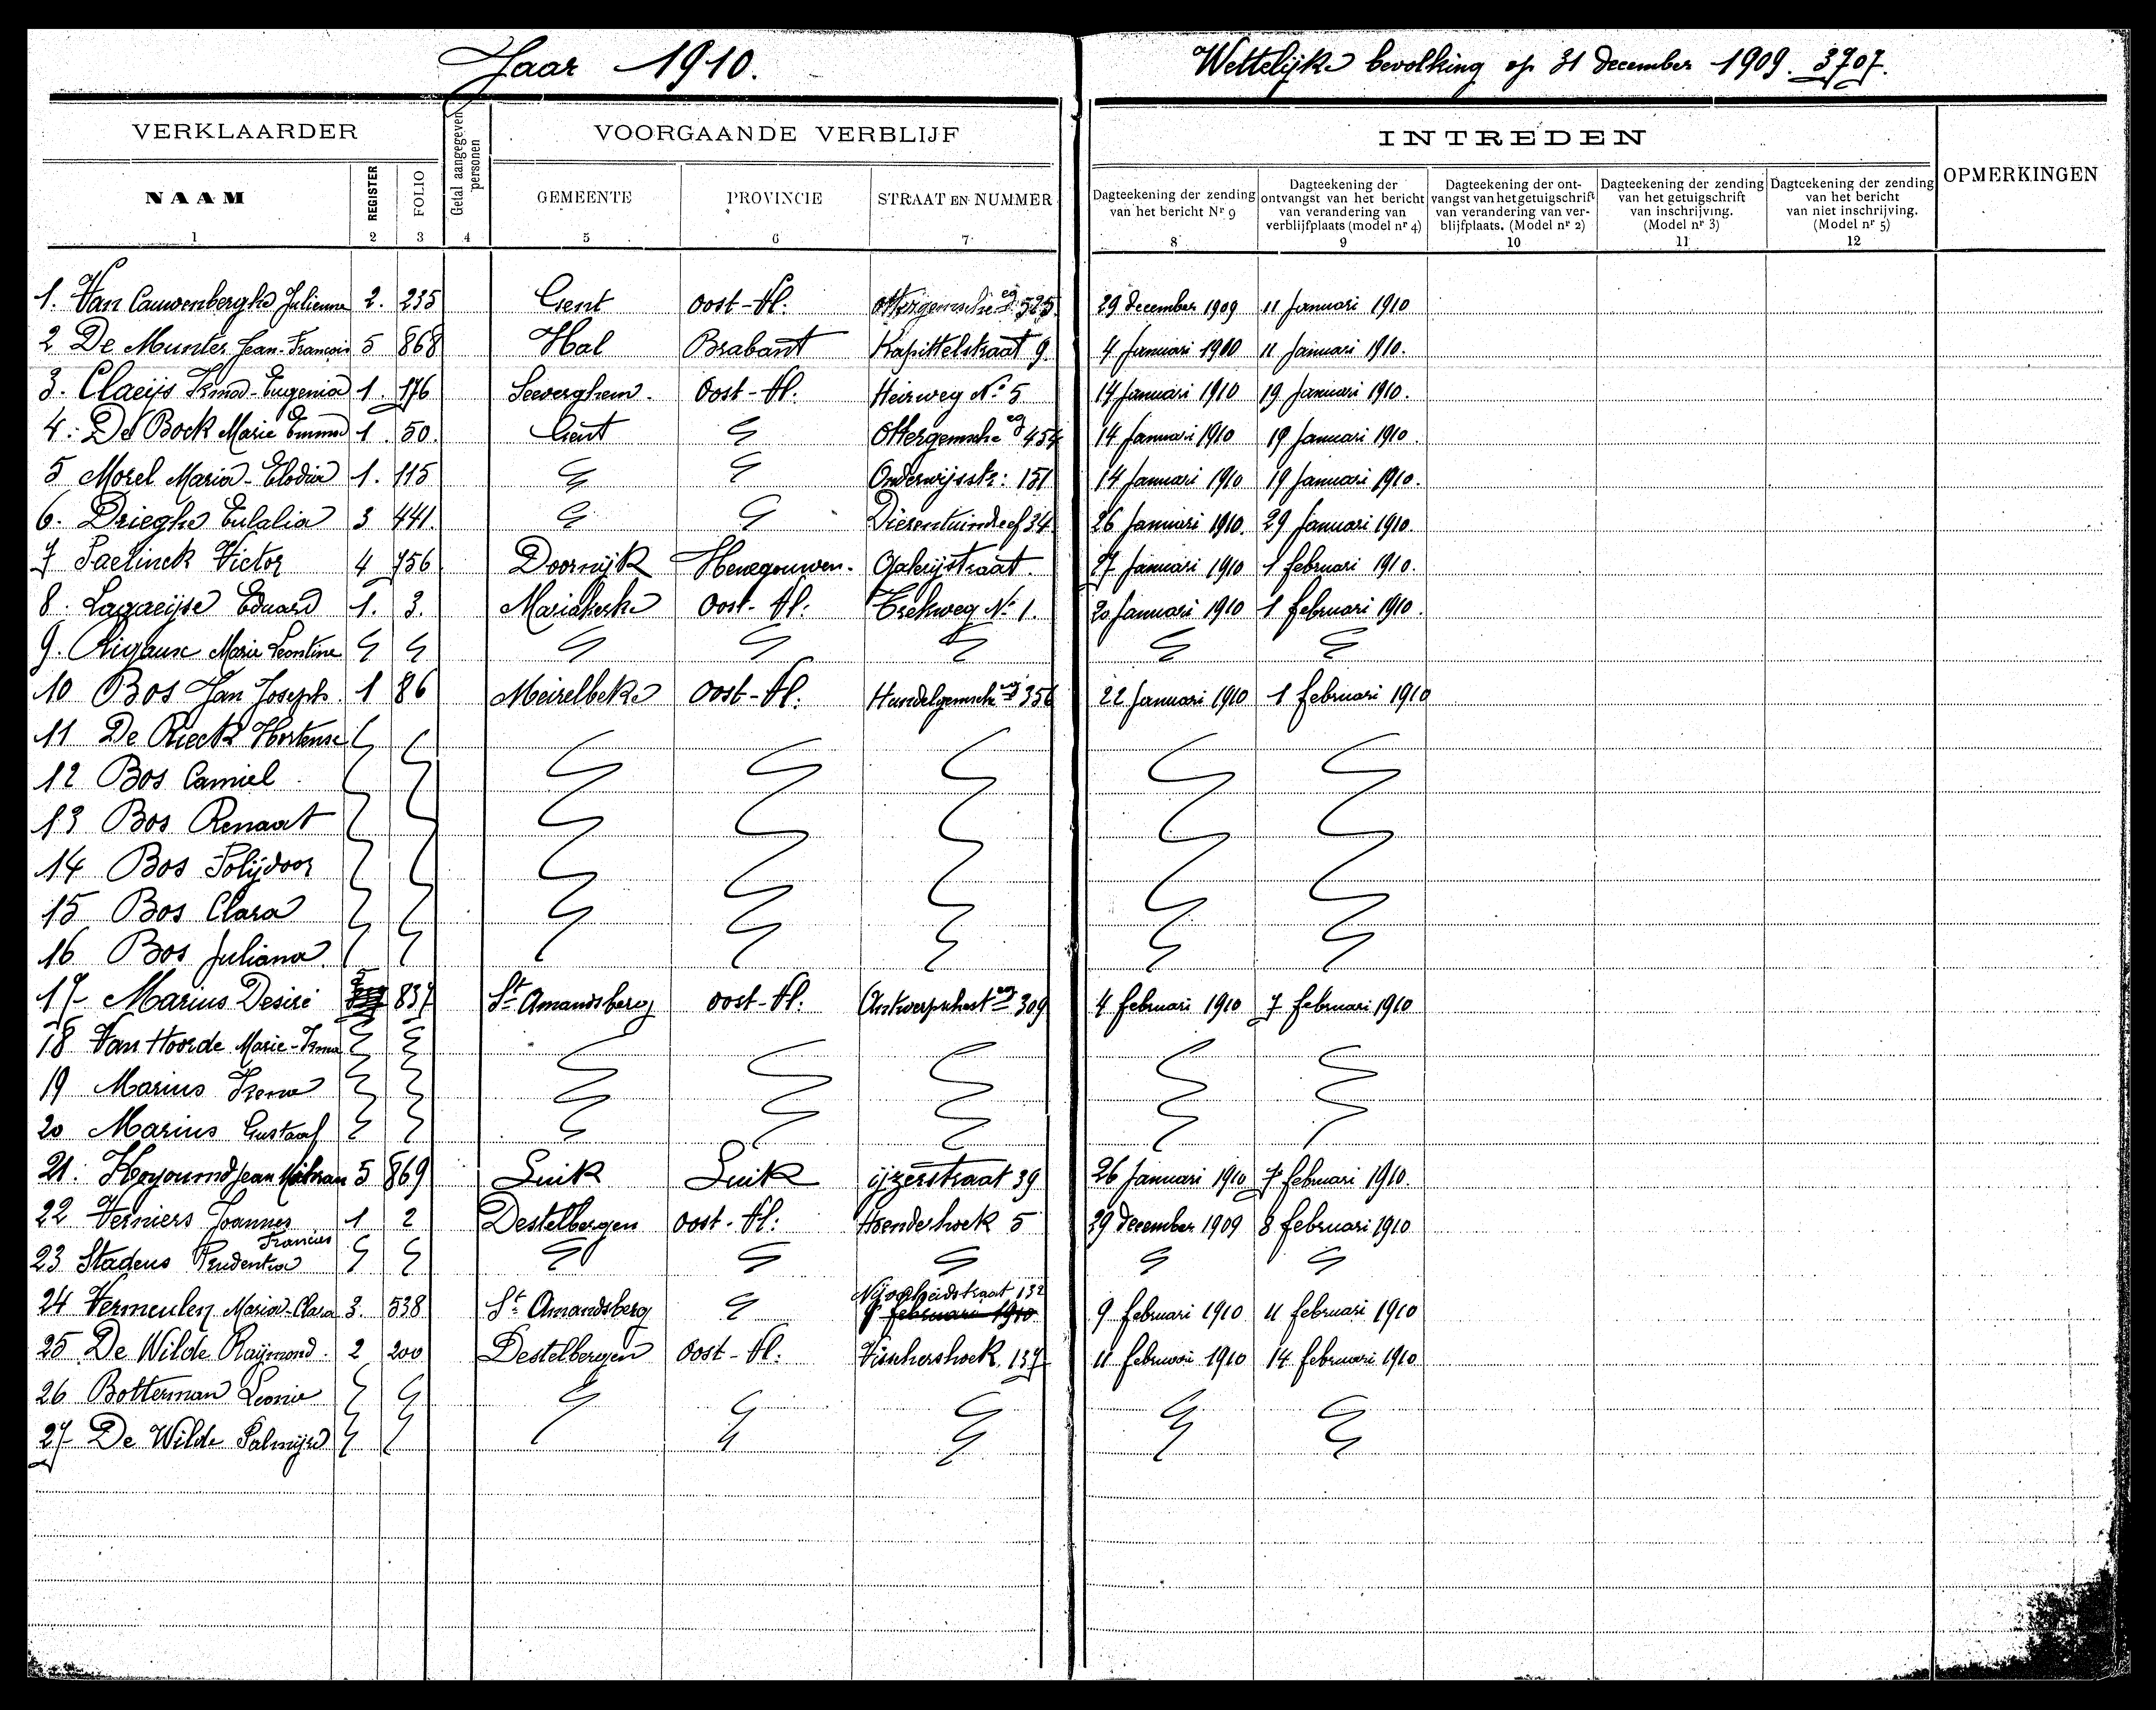 Jaar 1910.
Wettelijke bevolking op 31 december 1909. 3707.
VERKLAARDER
Getal aangegeven personen
VOORGAANDE VERBLIJF
INTREDEN
OPMERKINGEN
NAAM REGISTER FOLIO GEMEENTE PROVINCIE STRAAT EN NUMMER
Dagteekening der zending van het bericht Nr 9
Dagteekening der ontvangst van het bericht van verandering van verblijfplaats (model nr 4)
Dagteekening der ontvangst van het getuigschrift van verandering van verblijfplaats. (Model nr 2)
Dagteekening der zending van het getuigschrift van inschrijving. (Model nr 3)
Dagteekening der zending van het bericht van niet inschrijving. (Model nr 5)
1 2 3 4 5 6 7 8 9 10 11 12
1. Van Cauwenberghe Julienne 2. 235 Gent Oost-Vl: 29 december 1909 11 Januari 1910
2 De Munter Jean-François 5 868 Hal Brabant Kapittelstraat 9. 4 Januari 1910 11 Januari 1910.
3. Claeijs Irma-Eugenia 1. 176 Seeverghem. Oost-Vl: Heirweg No 5 14 Januari 1910 19 Januari 1910.
4. De Bock Marie Emma 1. 50. Gent Ottergemsche eg 454 14 Januari 1910 19 Januari 1910.
5 Morel Maria-Elodia 1. 115 Onderwijsstr: 151 14 Januari 1910 19 Januari 1910.
6. Drieghe Eulalia 3 441. Dierentuindreef 34. 26 Januari 1910. 29 Januari 1910.
7 Paelinck Victor 4 756 Doornijk Henegouwen. Galerijstraat. 27 Januari 1910 1 februari 1910.
8. Lagaeijse Eduard 1. 3. Mariakerke Oost-Vl: Trekweg No 1. 20 Januari 1910 1 februari 1910.
9. Rigaux Marie Leontine
10 Bos Jan Joseph. 1 86 Meirelbeke Oost-Vl: Hundelgemsche eg 356 22 Januari 1910 1 februari 1910
11 De Rieck Hortense
12 Bos Camiel
13 Bos Renaat
14 Bos Polijdoor
15 Bos Clara
16 Bos Juliana.
17 Marius Desiré 5 837 St Amandsberg Oost-Vl: 309 4 februari 1910 7 februari 1910
18 Van Hoorde Marie-Irma
19 Marius Irena
20 Marius Gustaaf
21. Jean 5 869 Luik Luik ijzerstraat 39 26 Januari 1910 7 februari 1910.
22 Verniers Joannes Francies 1 2 Destelbergen Oost-Vl: Hoenderhoek 5 29 december 1909 8 februari 1910
23 Stadeus Prudentia
24 Vermeulen Maria-Clara 3. 538 St Amandsberg Nijverheidstraat 132 9 februari 1910 9 februari 1910 11 februari 1910
25 De Wilde Raijmond. 2 200 Destelbergen Oost-Vl: Visschershoek 137 11 februari 1910 14 februari 1910
26 Botterman Leonie
27 De Wilde Palmijre